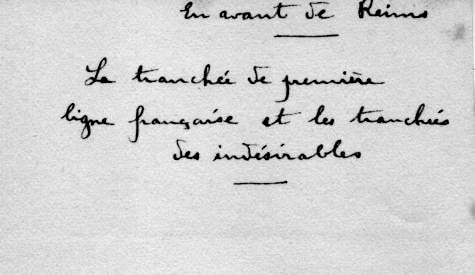 En avant de Reims
La tranchée de première
ligne française et les tranchées
des indésirables